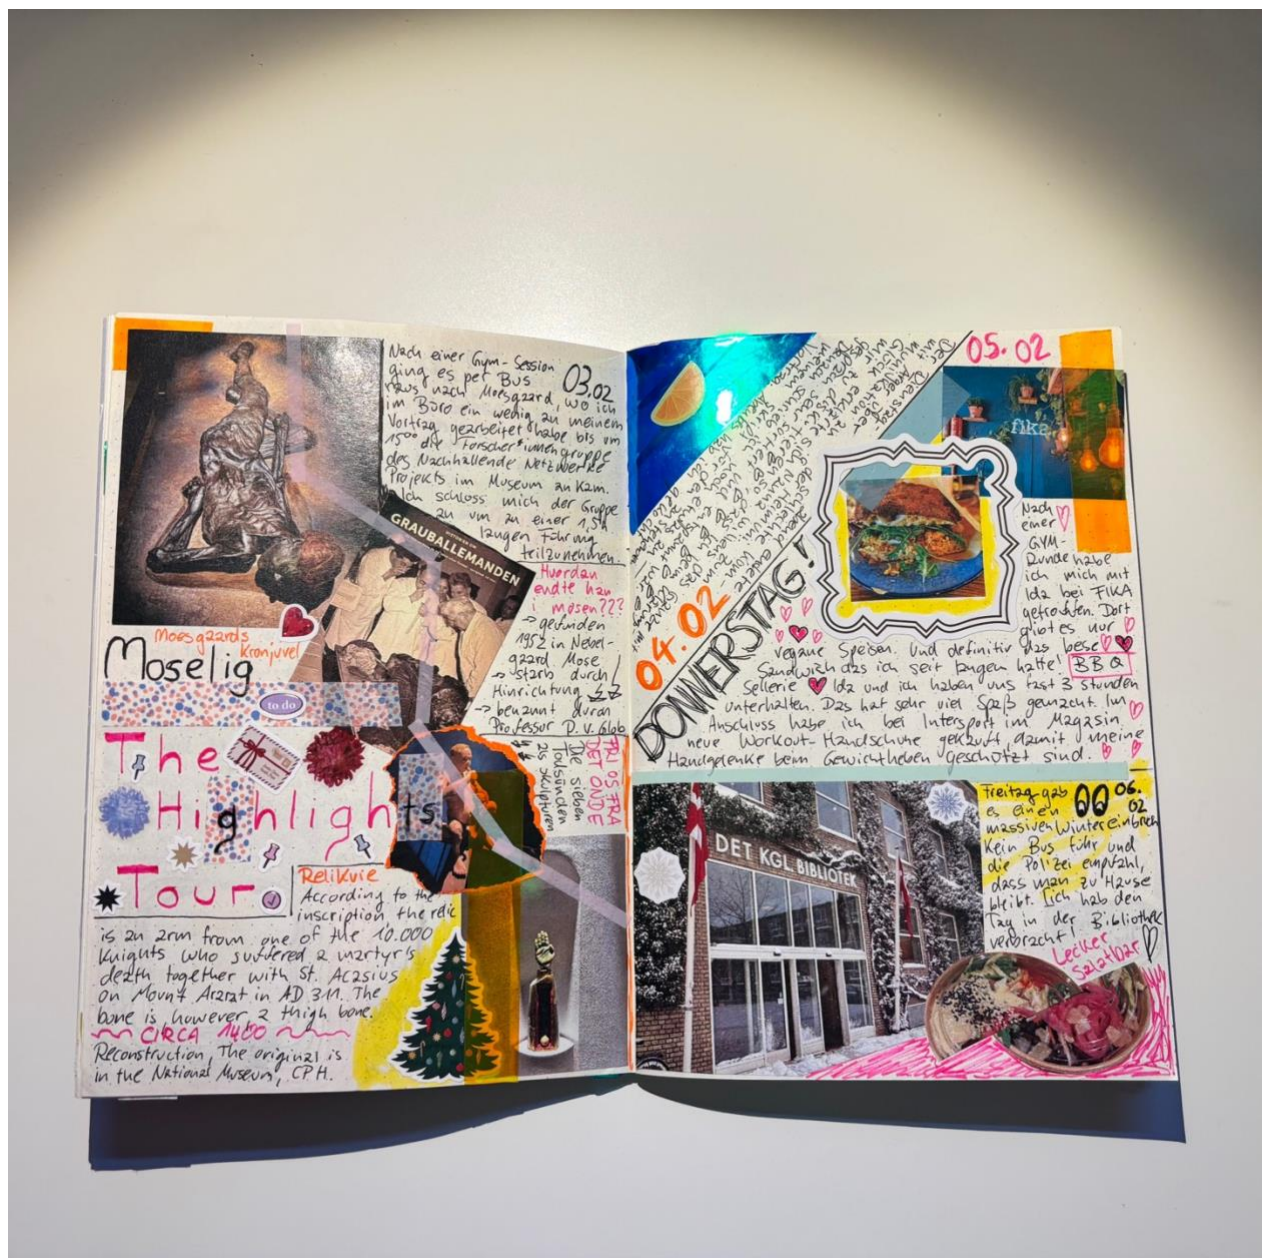 Nach einer Gym-Session
ging es per Bus
raus nach Moesgaard, wo ich
im Büro ein wenig an meinem
Vortrag gearbeitet habe bis um
15⁰⁰ die Forscher*innengruppe
des Nachhallende Netzwerke
Projekts im Museum an kam.
Ich schloss mich der Gruppe
an um an einer 1,5h
langen Führung
teilzunehmen.
03.02
GRAUBALLEMANDEN
Hvordan
endte han
i mosen???
→ gefunden
1952 in Nebel-
gaard Mose
→ starb durch
Hinrichtung
→ benannt durch
Professor P. V. Glob
Moesgaards
Kronjuvel
Moselig
to do
The
Highlights
Tour
FRI OS FRA
DET ONDE
Die sieben
Todsünden
als Skulpturen
Relikvie
According to the
inscription, the relic
is an arm from one of the 10.000
Knights who suffered a martyr's
death together with St. Acasius
on Mount Ararat in AD 311. The
bone is however a thigh bone.
CIRCA 1400
Reconstruction, The original is
in the National Museum, CPH.
04.02
DONNERSTAG!
05.02
fika
Nach
einer
GYM-
Runde habe
ich mich mit
Ida bei FIKA
getroffen. Dort
gibt es nur
vegane Speisen. Und definitiv das beste
Sandwich das ich seit langen hatte! BBQ
Sellerie Ida und ich haben uns fast 3 stunden
unterhalten. Das hat sehr viel Spaß gemacht. Im
Anschluss habe ich bei Intersport im Magasin
neue Workout-Handschuhe gekauft damit meine
Handgelenke beim Gewichtheben geschützt sind.
DET KGL. BIBLIOTEK
Freitag gab
es einen
massiven Wintereinbruch
Kein Bus fuhr und
die Polizei empfahl,
dass man zu Hause
bleibt. Ich hab den
Tag in der Bibliothek
verbracht!
06.
02
Lecker
Salatbar